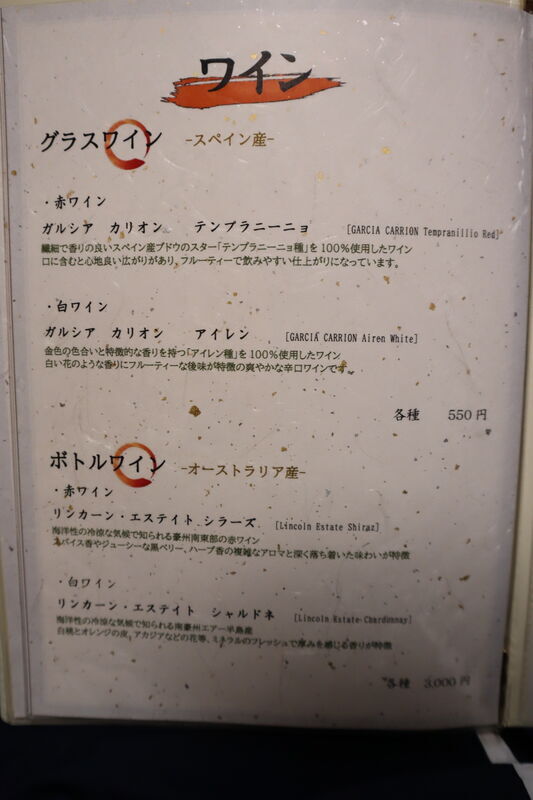 ワイン
グラスワイン -スペイン産-
・赤ワイン
ガルシア カリオン テンプラニーニョ [GARCIA CARRION Tempranillio Red]
繊細で香りの良いスペイン産ブドウのスター「テンプラニーニョ種」を100%使用したワイン
口に含むと心地良い広がりがあり、フルーティーで飲みやすい仕上がりになっています。
・白ワイン
ガルシア カリオン アイレン [GARCIA CARRION Airen White]
金色の色合いと特徴的な香りを持つ「アイレン種」を100%使用したワイン
白い花のような香りにフルーティーな後味が特徴の爽やかな辛口ワインです。
各種 550円
ボトルワイン -オーストラリア産-
・赤ワイン
リンカーン・エステイト シラーズ [Lincoln Estate Shiraz]
海洋性の冷涼な気候で知られる豪州南東部の赤ワイン
スパイス香やジューシーな黒ベリー、ハーブ香の複雑なアロマと深く落ち着いた味わいが特徴
・白ワイン
リンカーン・エステイト シャルドネ [Lincoln Estate Chardonnay]
海洋性の冷涼な気候で知られる南豪州エアー半島産
白桃とオレンジの皮、アカジアなどの花等、ミネラルのフレッシュで厚みを感じる香りが特徴
各種 3,000円